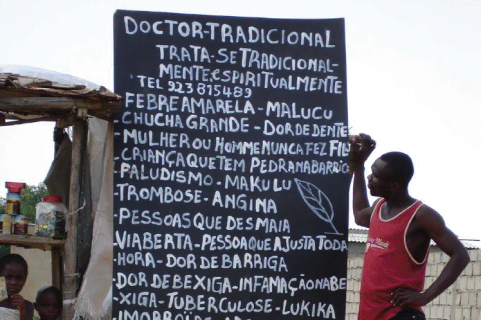 DOCTOR-TRADICIONAL
TRATA-SE TRADICIONAL-
MENTE, ESPIRITUALMENTE
TEL 923815489
FEBRE AMARELA - MALUCU
CHUCHA GRANDE - DOR DE DENTE
-MULHER OU HOMEM NUNCA FEZ FIL
-CRIANÇA QUE TEM PEDRA NA BARRIG
-PALUDISMO - MAKULU
-TROMBOSE - ANGINA
-PESSOAS QUE DESMAIA
-VIA BERTA - PESSOA QUE AJUSTA TODA
-HORA - DOR DE BARRIGA
-DOR DE BEXIGA - INFAMAÇÃO NA BE
-XIGA - TUBERCULOSE - LUKIKA